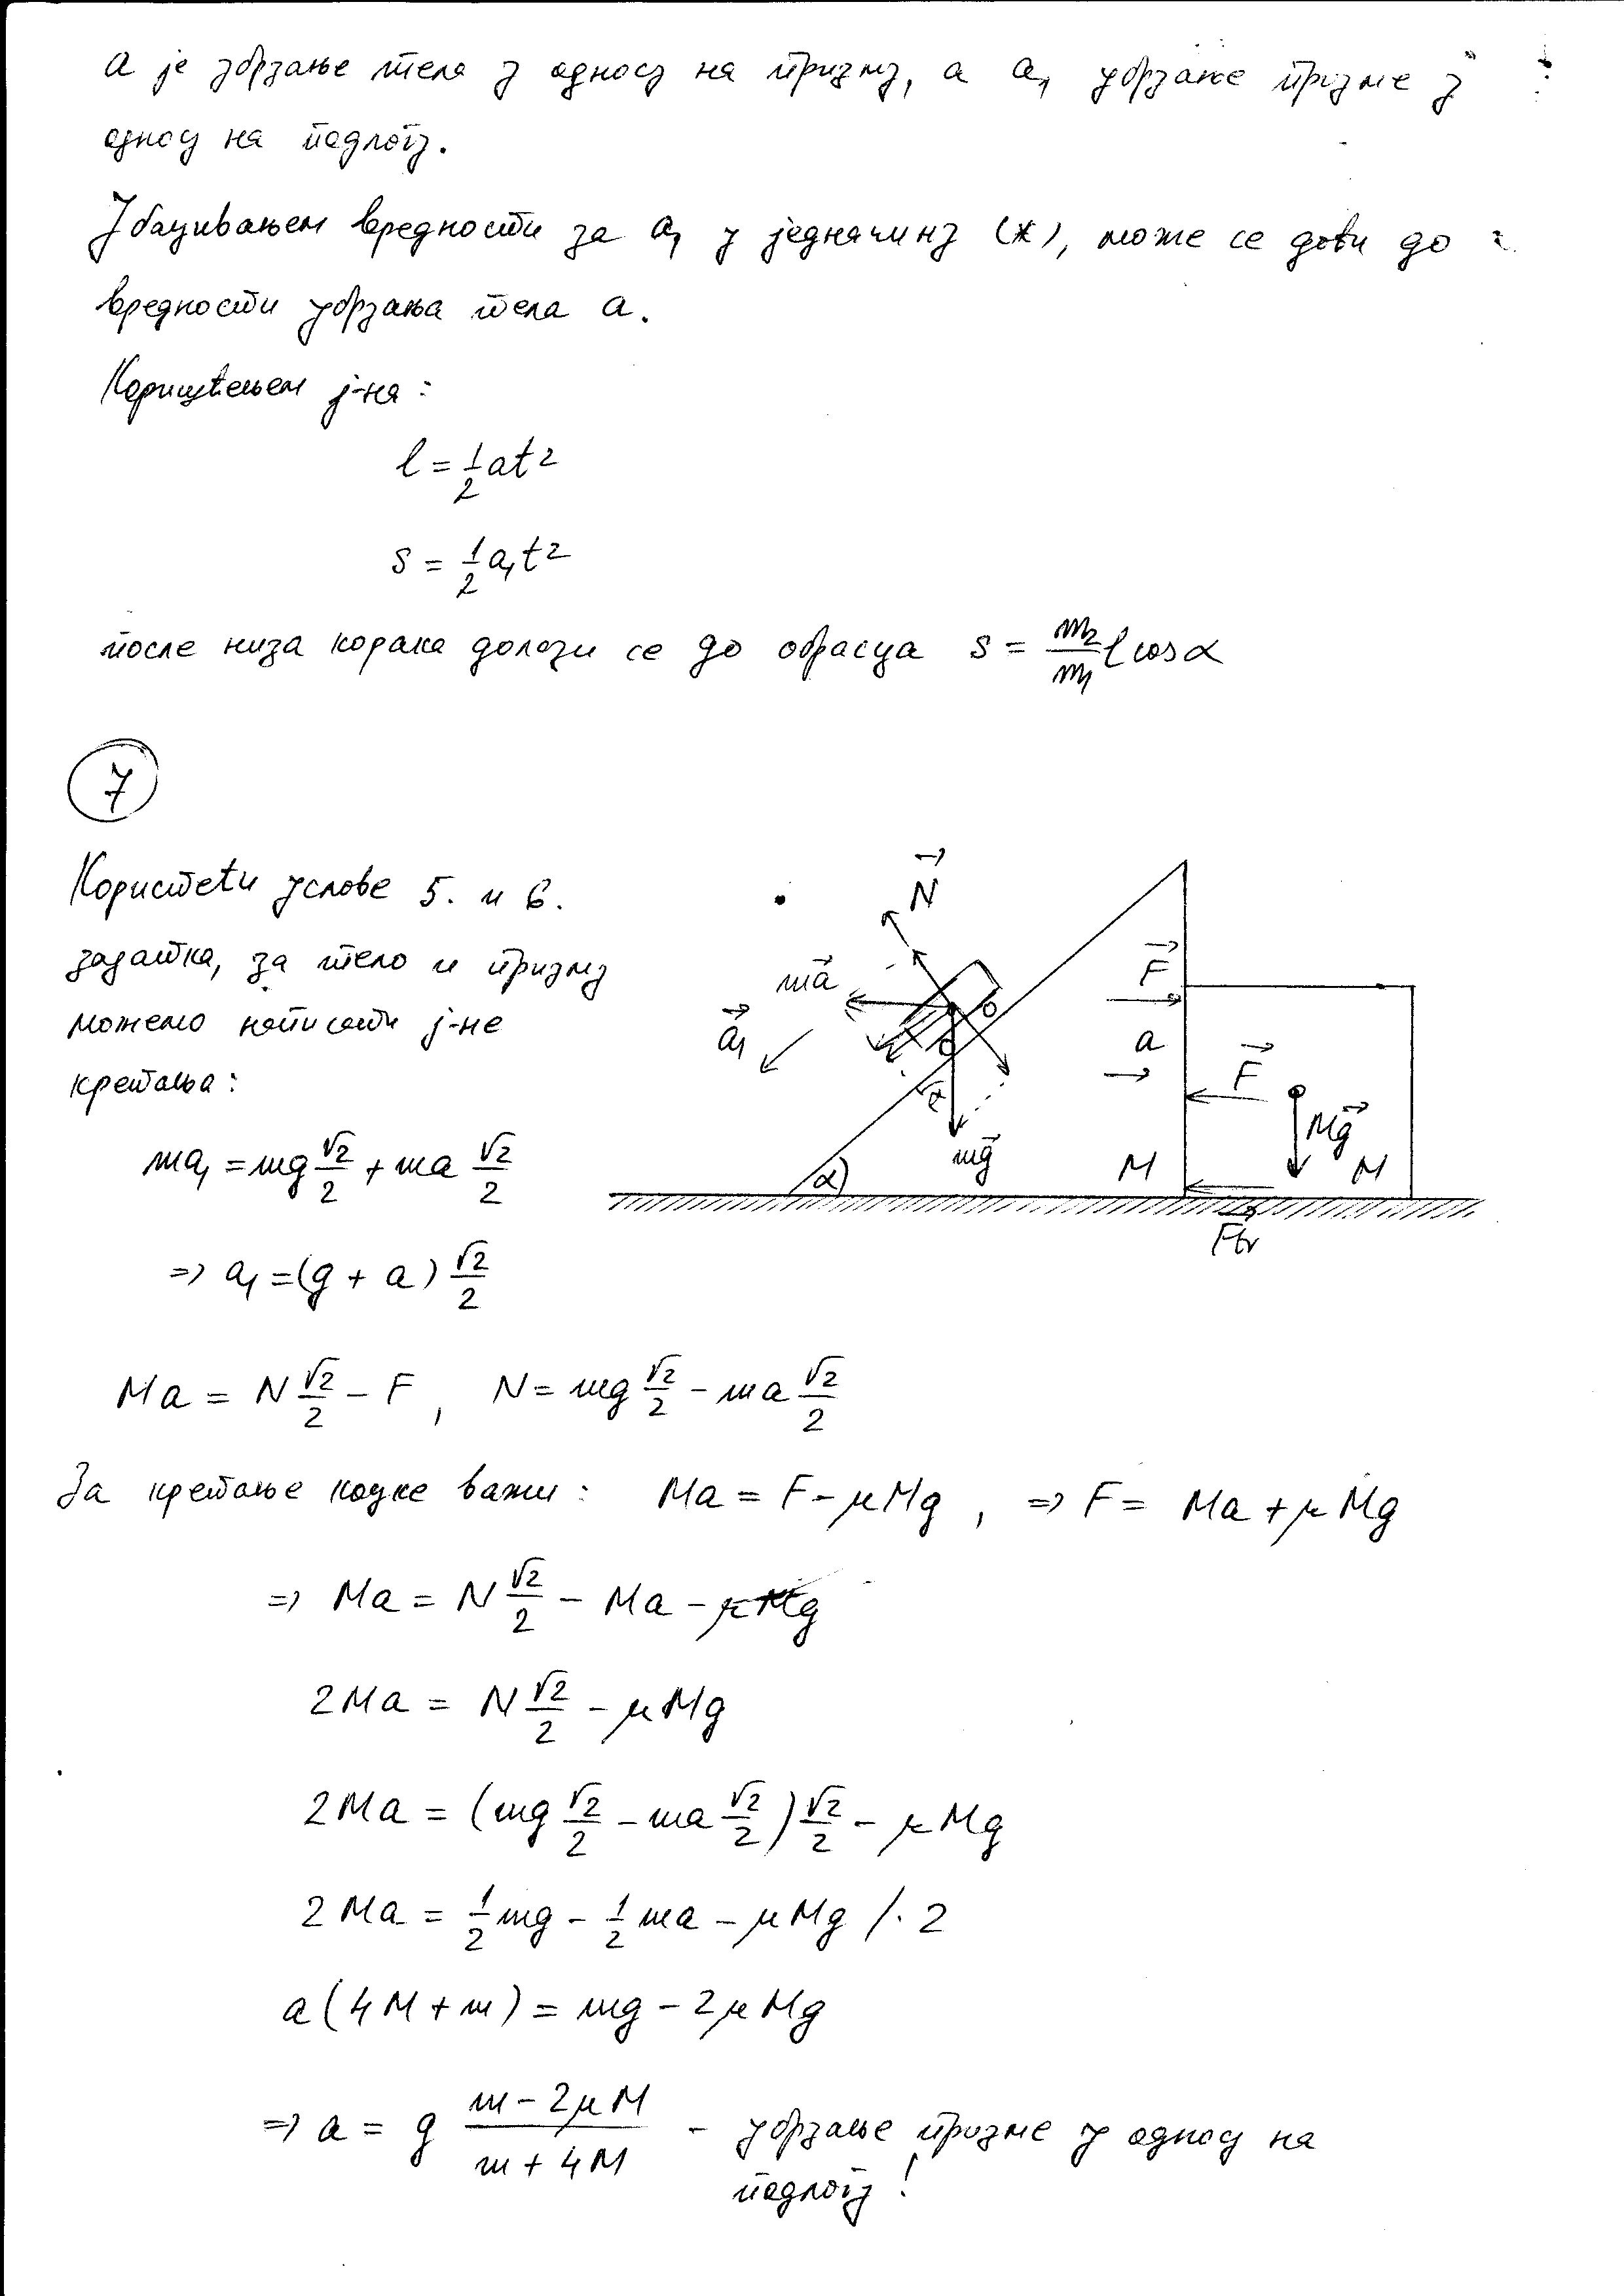 a је убрзање тела у односу на призму, а a₁ убрзање призме у
односу на подлогу.
Убацивањем вредности за a₁ у једначину (*), може се доћи до
вредности убрзања тела a.
Коришћењем ј-на:
l = 1/2 at²
s = 1/2 a₁t²
после низа корака долази се до обрасца s = m₂/m₁ l cos α
7
Користећи услове 5. и 6.
задатка, за тело и призму
можемо написати ј-не
кретања:
ma₁ = mg √2/2 + ma √2/2
=> a₁ = (g + a) √2/2
N⃗
ma⃗
a⃗₁
F⃗
a
F⃗
α
mg⃗
Mg⃗
α
M
M
Ftr
Ma = N √2/2 - F, N = mg √2/2 - ma √2/2
За кретање коцке важи: Ma = F - μMg, => F = Ma + μMg
=> Ma = N √2/2 - Ma - μMg
2Ma = N √2/2 - μMg
2Ma = (mg √2/2 - ma √2/2) √2/2 - μMg
2Ma = 1/2 mg - 1/2 ma - μMg /· 2
a(4M + m) = mg - 2μMg
=> a = g (m - 2μM)/(m + 4M) - убрзање призме у односу на
подлогу!